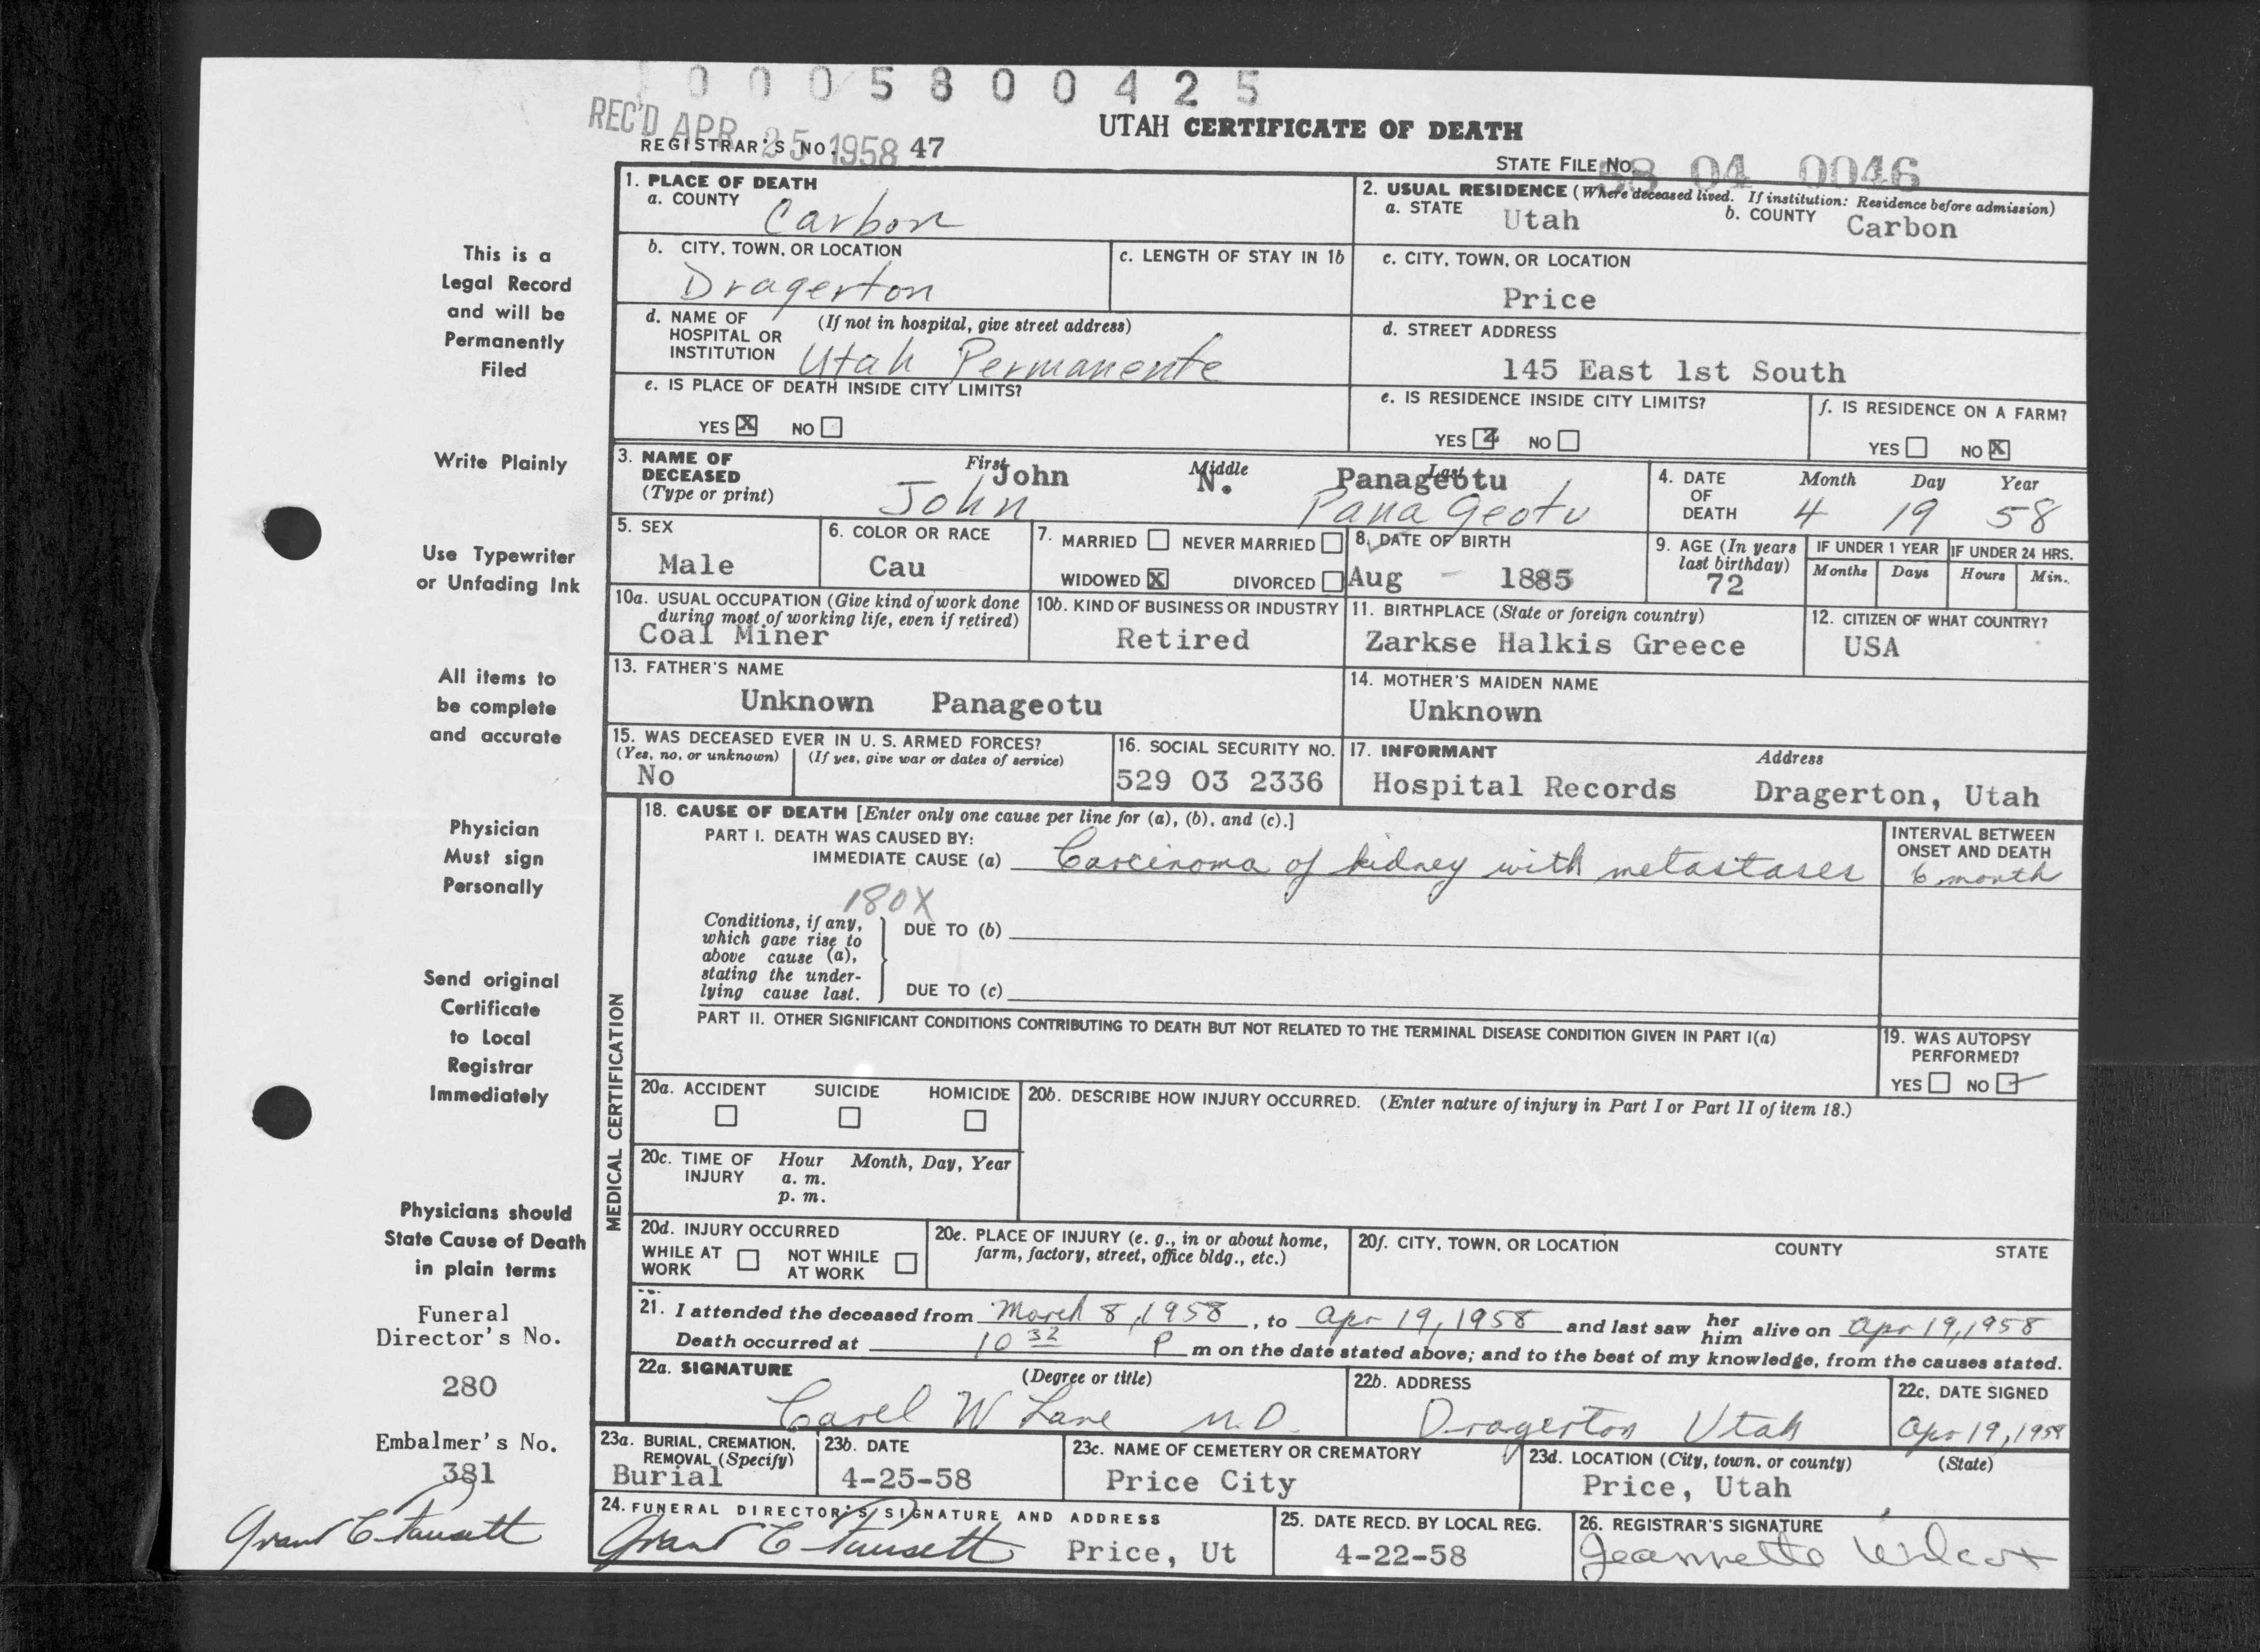 0005800425
REC'D APR 25 1958
UTAH CERTIFICATE OF DEATH
REGISTRAR'S NO. 47
STATE FILE NO. 58 04 0046
1. PLACE OF DEATH
a. COUNTY Carbon
2. USUAL RESIDENCE (Where deceased lived. If institution: Residence before admission)
a. STATE Utah b. COUNTY Carbon
This is a
Legal Record
and will be
Permanently
Filed
b. CITY, TOWN, OR LOCATION
Dragerton
c. LENGTH OF STAY IN 1b
c. CITY, TOWN, OR LOCATION
Price
d. NAME OF (If not in hospital, give street address)
HOSPITAL OR
INSTITUTION Utah Permanente
d. STREET ADDRESS
145 East 1st South
e. IS PLACE OF DEATH INSIDE CITY LIMITS?
YES X NO
e. IS RESIDENCE INSIDE CITY LIMITS?
YES NO
f. IS RESIDENCE ON A FARM?
YES NO X
Write Plainly
3. NAME OF
DECEASED
(Type or print)
First Middle Last
John N. Panageotu
John PanaGeotu
4. DATE Month Day Year
OF
DEATH 4 19 58
Use Typewriter
or Unfading Ink
5. SEX
Male
6. COLOR OR RACE
Cau
7. MARRIED NEVER MARRIED
WIDOWED X DIVORCED
8. DATE OF BIRTH
Aug - 1885
9. AGE (In years
last birthday)
72
IF UNDER 1 YEAR
Months Days
IF UNDER 24 HRS.
Hours Min.
10a. USUAL OCCUPATION (Give kind of work done
during most of working life, even if retired)
Coal Miner
10b. KIND OF BUSINESS OR INDUSTRY
Retired
11. BIRTHPLACE (State or foreign country)
Zarkse Halkis Greece
12. CITIZEN OF WHAT COUNTRY?
USA
All items to
be complete
and accurate
13. FATHER'S NAME
Unknown Panageotu
14. MOTHER'S MAIDEN NAME
Unknown
15. WAS DECEASED EVER IN U. S. ARMED FORCES?
(Yes, no, or unknown) (If yes, give war or dates of service)
No
16. SOCIAL SECURITY NO.
529 03 2336
17. INFORMANT Address
Hospital Records Dragerton, Utah
Physician
Must sign
Personally
MEDICAL CERTIFICATION
18. CAUSE OF DEATH [Enter only one cause per line for (a), (b), and (c).]
PART I. DEATH WAS CAUSED BY:
IMMEDIATE CAUSE (a) Carcinoma of kidney with metastases
INTERVAL BETWEEN
ONSET AND DEATH
6 month
180X
Conditions, if any,
which gave rise to
above cause (a),
stating the under-
lying cause last.
DUE TO (b)
DUE TO (c)
Send original
Certificate
to Local
Registrar
Immediately
PART II. OTHER SIGNIFICANT CONDITIONS CONTRIBUTING TO DEATH BUT NOT RELATED TO THE TERMINAL DISEASE CONDITION GIVEN IN PART I(a)
19. WAS AUTOPSY
PERFORMED?
YES NO ✓
20a. ACCIDENT SUICIDE HOMICIDE
20b. DESCRIBE HOW INJURY OCCURRED. (Enter nature of injury in Part I or Part II of item 18.)
20c. TIME OF Hour Month, Day, Year
INJURY a. m.
p. m.
Physicians should
State Cause of Death
in plain terms
20d. INJURY OCCURRED
WHILE AT WORK NOT WHILE AT WORK
20e. PLACE OF INJURY (e. g., in or about home,
farm, factory, street, office bldg., etc.)
20f. CITY, TOWN, OR LOCATION COUNTY STATE
21. I attended the deceased from March 8, 1958, to Apr 19, 1958 and last saw her him alive on Apr 19, 1958
Death occurred at 10 32 P m on the date stated above; and to the best of my knowledge, from the causes stated.
Funeral
Director's No.
280
22a. SIGNATURE (Degree or title)
Carel W Lane M.D.
22b. ADDRESS
Dragerton Utah
22c. DATE SIGNED
Apr 19, 1958
Embalmer's No.
381
Grant C Fausett
23a. BURIAL, CREMATION,
REMOVAL (Specify)
Burial
23b. DATE
4-25-58
23c. NAME OF CEMETERY OR CREMATORY
Price City
23d. LOCATION (City, town, or county) (State)
Price, Utah
24. FUNERAL DIRECTOR'S SIGNATURE AND ADDRESS
Grant C Fausett Price, Ut
25. DATE RECD. BY LOCAL REG.
4-22-58
26. REGISTRAR'S SIGNATURE
Jeannette Wilcox